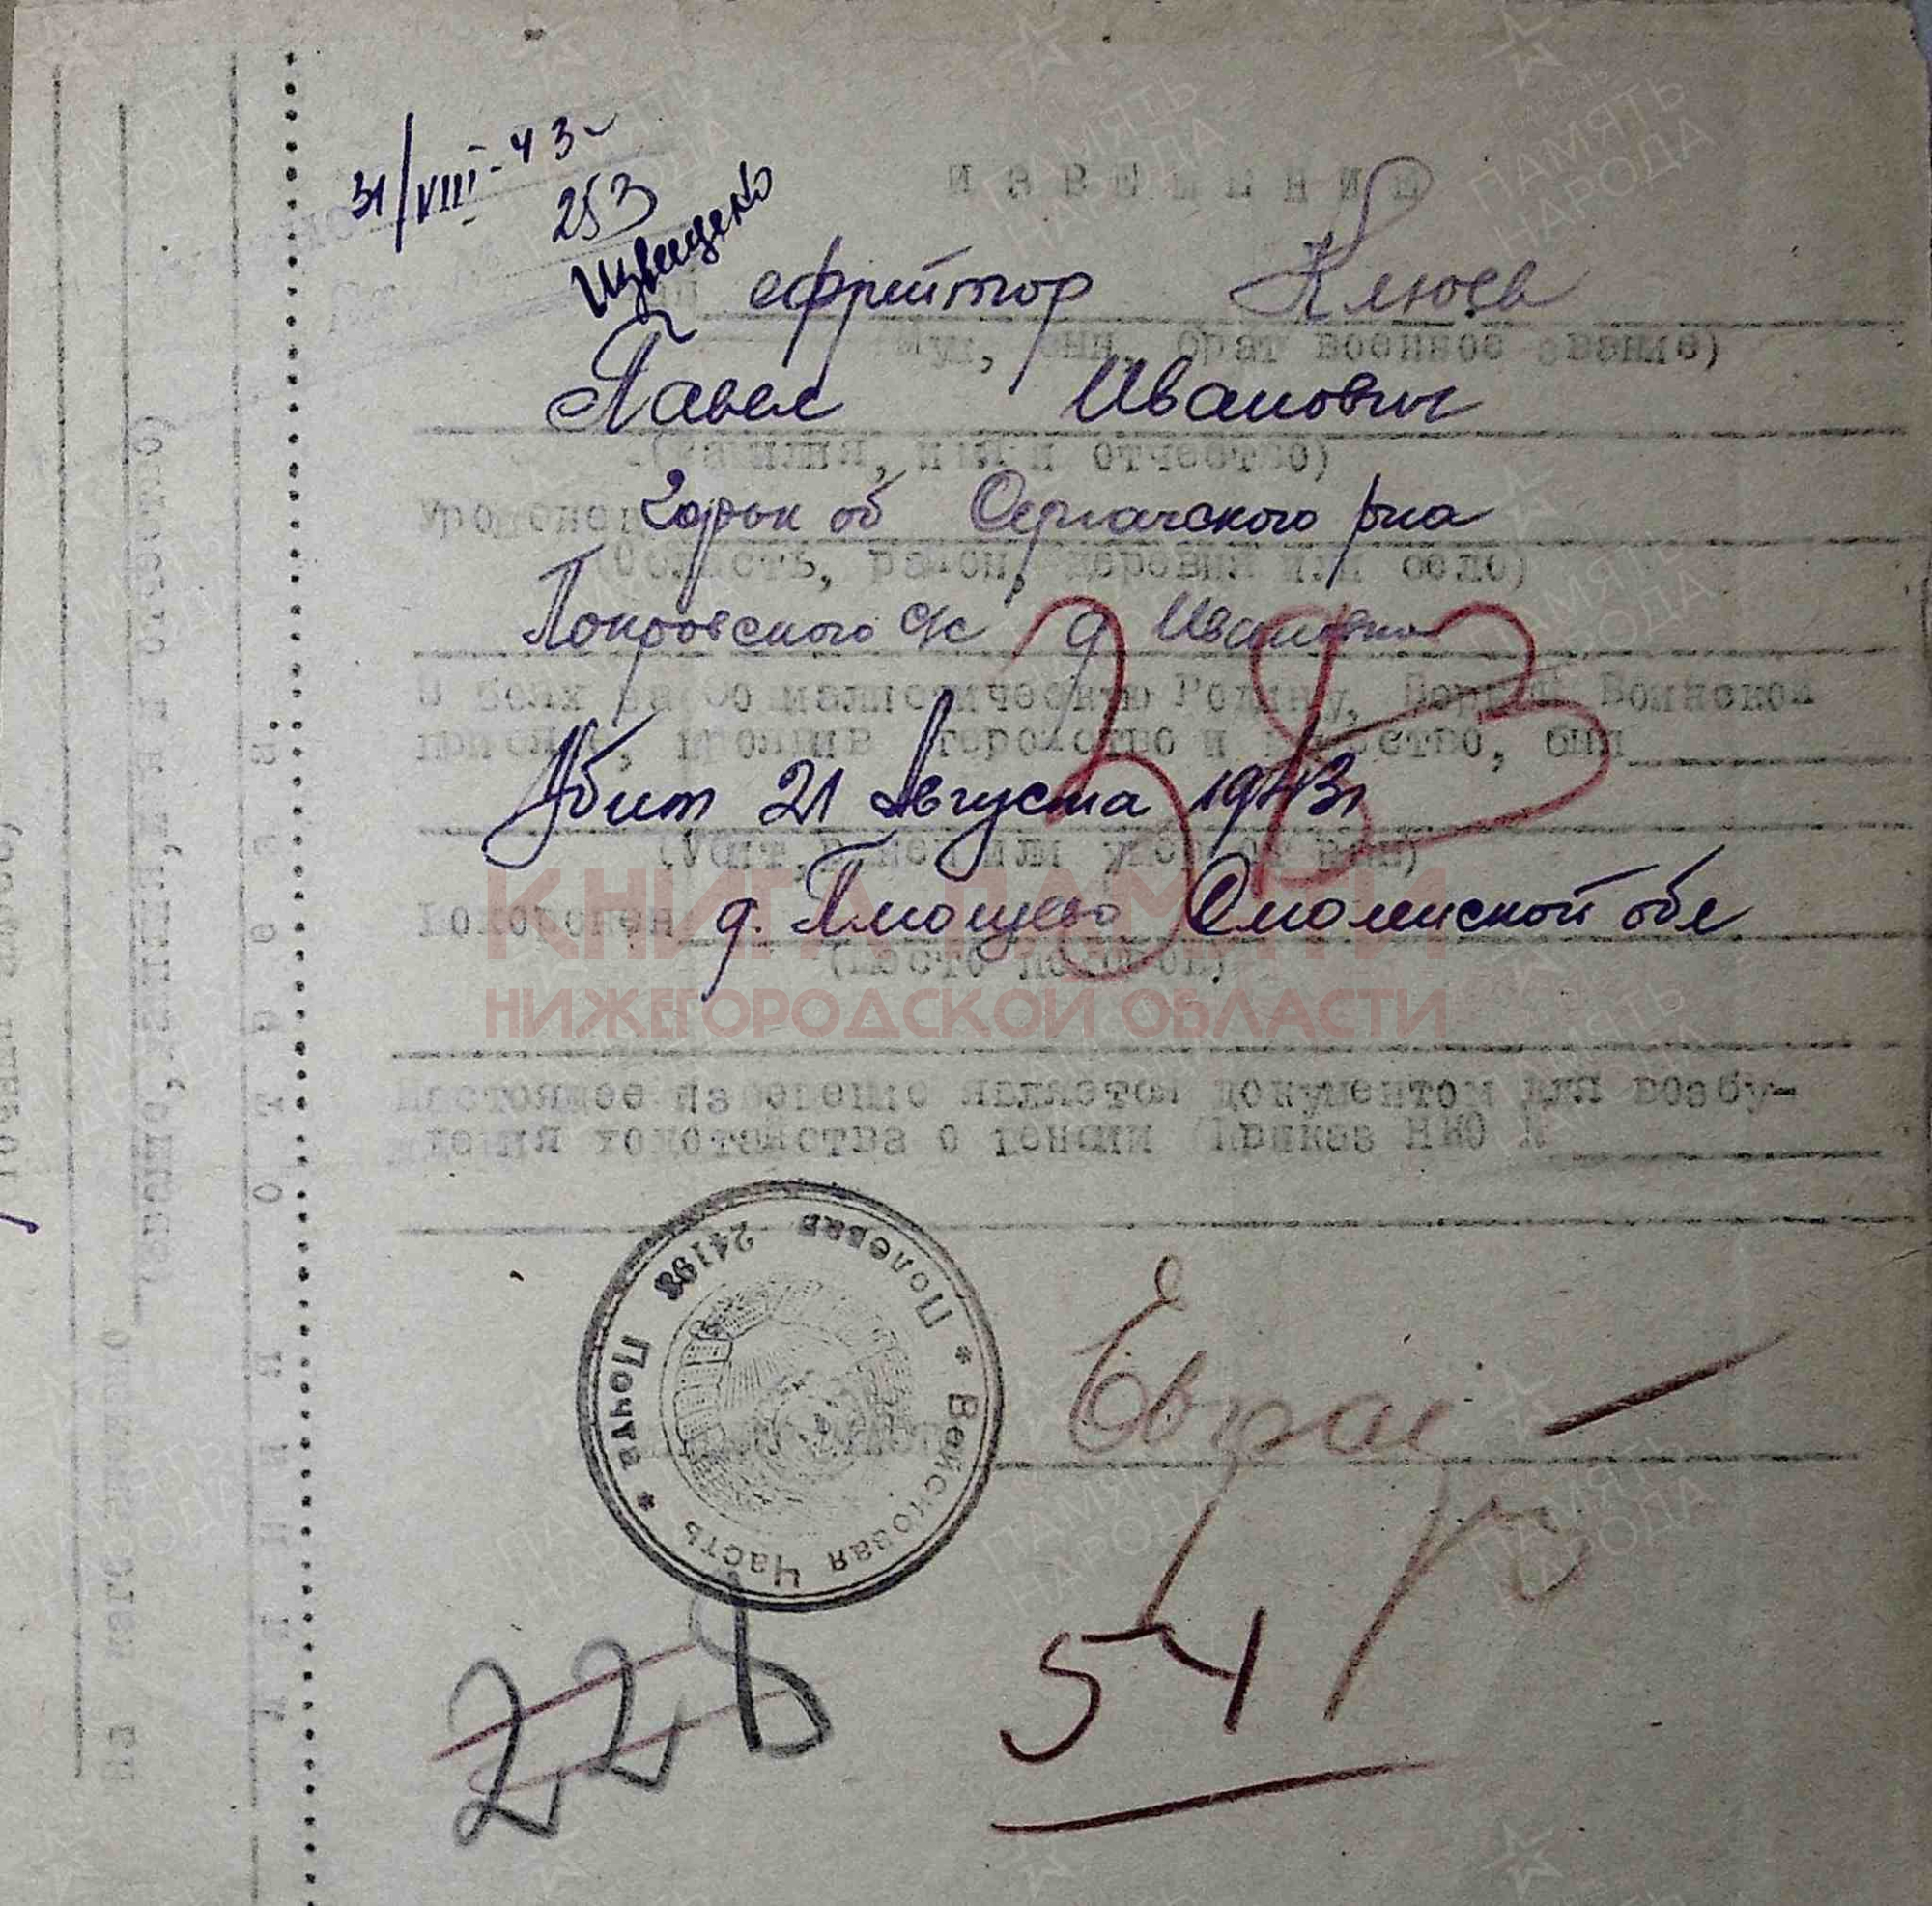 31/VIII-43
253
Извещено
ИЗВЕЩЕНИЕ
ефрейтор Клюев
(Муж, сын, брат военное звание)
Павел Иванович
(Фамилия, имя и отчество)
Уроженец Горьк об Сергачского р-на
(Область, район, деревня или село)
Покровского с/с д Ивановка
383
В боях за Социалистическую Родину, верный Воинской
присяге, проявив геройство и мужество, был
Убит 21 Августа 1943г
КНИГА ПАМЯТИ
Похоронен д. Плющево Смоленской обл
(место похорон)
НИЖЕГОРОДСКОЙ ОБЛАСТИ
Настоящее извещение является документом для возбу-
ждения ходотайства о пенсии (Приказ НКО №
Войсковая Часть * Полевая Почта * 24198
228
54
ПАМЯТЬ
НАРОДА